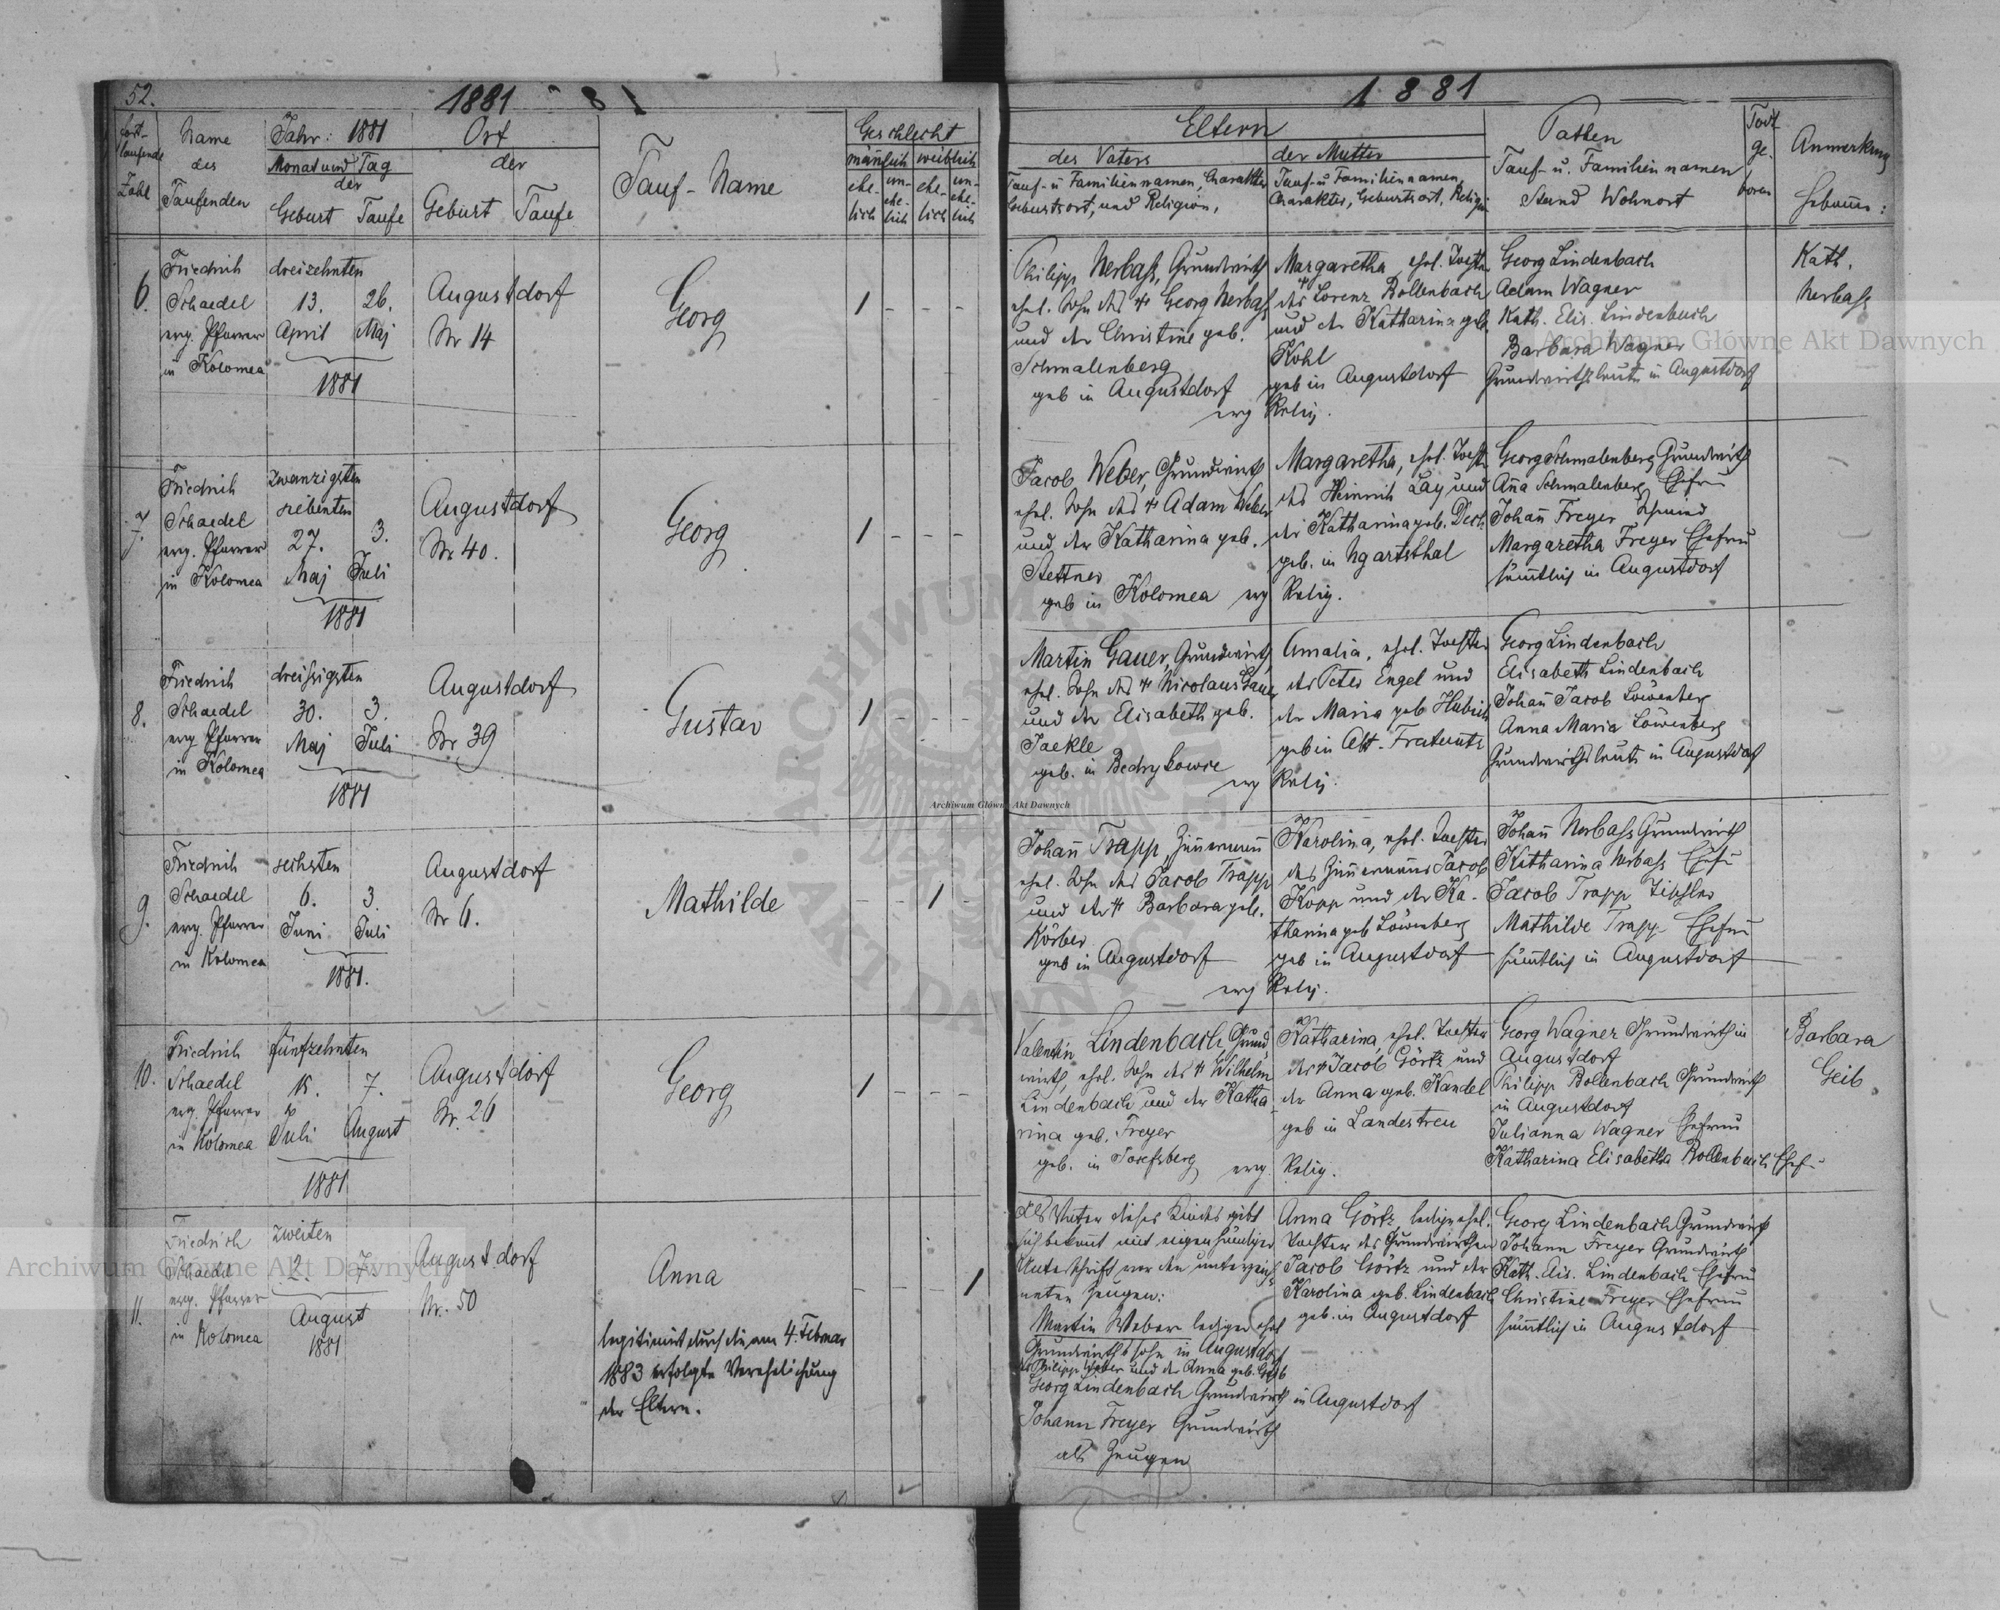 52.
1881
1881
fort-
laufende
Zahl
Name
des
Taufenden
Jahr: 1881
Monat und Tag
der
Geburt Taufe
Ort
der
Geburt Taufe
Tauf-Name
Geschlecht
mänlich weiblich
ehe-
lich
un-
ehe-
lich
ehe-
lich
un-
ehe-
lich
Eltern
des Vaters
Tauf- u Familiennamen, Charakter
Geburtsort, und Religion,
der Mutter
Tauf- u Familiennamen,
Charakter, Geburtsort, Religion
Pathen
Tauf- u. Familiennamen
Stand Wohnort
Todt
ge-
boren
Anmerkung
Hebamme:
6.
Friedrich
Schaedel
evg. Pfarrer
in Kolomea
dreizehnten
13. 26.
April Maj
1881
Augustdorf
Nr 14
Georg
1 - - -
Philipp Nerbass, Grundwirth
ehel. Sohn des + Georg Nerbass
und der Christine geb.
Schmalenberg
geb in Augustdorf
evg Relig.
Margaretha, ehel. Tochter
des + Lorenz Bollenbach
und der Katharina geb.
Kohl
geb in Augustdorf
Georg Lindenbach
Adam Wagner
Kath. Elis. Lindenbach
Barbara Wagner
Grundwirthsleute in Augustdorf
Kath.
Nerbass
7.
Friedrich
Schaedel
evg. Pfarrer
in Kolomea
zwanzigsten
siebenten
27. 3.
Maj Juli
1881
Augustdorf
Nr 40.
Georg
1 - - -
Jacob Weber, Grundwirth
ehel. Sohn des + Adam Weber
und der Katharina geb.
Stettner
geb in Kolomea evg Relig.
Margaretha, ehel. Tochter
des Heinrich Lay und
der Katharina geb.
geb. in Ugartsthal
Georg Schmalenberg Grundwirth
Anna Schmalenberg Ehefrau
Johann Freyer Schmied
Margaretha Freyer Ehefrau
sämtlich in Augustdorf
8.
Friedrich
Schaedel
evg Pfarrer
in Kolomea
dreissigsten
30. 3.
Maj Juli
1881
Augustdorf
Nr 39
Gustav
1 - - -
Martin Gauer, Grundwirth
ehel. Sohn des + Nicolaus Gauer
und der Elisabeth geb.
Jaekle
geb. in Bedrykowce
evg Relig.
Amalia, ehel. Tochter
des Peter Engel und
der Maria geb
geb in Alt-Fratautz
Georg Lindenbach
Elisabeth Lindenbach
Johann Jacob Löwenberg
Anna Maria Löwenberg
Grundwirthsleute in Augustdorf
9.
Friedrich
Schaedel
evg. Pfarrer
in Kolomea
sechsten
6. 3.
Juni Juli
1881.
Augustdorf
Nr 6.
Mathilde
- - 1 -
Johann Trapp Zimmermann
ehel. Sohn des Jacob Trapp
und der + Barbara geb.
Körber
geb in Augustdorf
evg Relig.
Karolina, ehel. Tochter
des Zimmermanns Jacob
Kopp und der Ka-
tharina geb Löwenberg
geb in Augustdorf
Johann Nerbass Grundwirth
Katharina Nerbass Ehefr
Jacob Trapp Tischler
Mathilde Trapp Ehefrau
sämtlich in Augustdorf
10.
Friedrich
Schaedel
evg. Pfarrer
in Kolomea
fünfzehnten
15. 7.
Juli August
1881
Augustdorf
Nr. 26
Georg
1 - - -
Valentin Lindenbach, Grund
wirth, ehel. Sohn des + Wilhelm
Lindenbach und der Katha
rina geb. Freyer
geb. in Josefsberg evg. Relig.
Katharina ehel. Tochter
des + Jacob Görtz und
der Anna geb. Kandel
geb in Landestreu
Georg Wagner Grundwirth in
Augustdorf
Philipp Bollenbach Grundwirth
in Augustdorf
Julianna Wagner Ehefrau
Katharina Elisabetha Bollenbach Ehef
Barbara
Geib
11.
Friedrich
Schaedel
evg. Pfarrer
in Kolomea
zweiten
2. 7.
August
1881
Augustdorf
Nr. 50
Anna
legitimirt durch die am 4. Februar
1883 erfolgte Verehelichung
der Eltern.
- - - 1
Als Vater dieses Kindes gibt
sich bekannt mit eigenhändiger
Unterschrift vor den unterzeich
neten Zeugen:
Martin Weber lediger ehel
Grundwirthssohn in Augustdorf
des Philipp Weber und der Anna geb.
Georg Lindenbach Grundwirth in Augustdorf
Johann Freyer Grundwirth
als Zeugen
Anna Görtz, ledige ehel.
Tochter des Grundwirthen
Jacob Görtz und der
Karolina geb. Lindenbach
geb. in Augustdorf
Georg Lindenbach Grundwirth
Johann Freyer Grundwirth
Kath. Elis. Lindenbach Ehefrau
Christine Freyer Ehefrau
sämtlich in Augustdorf
Archiwum Główne Akt Dawnych
Archiwum Główne Akt Dawnych
Archiwum Główne Akt Dawnych